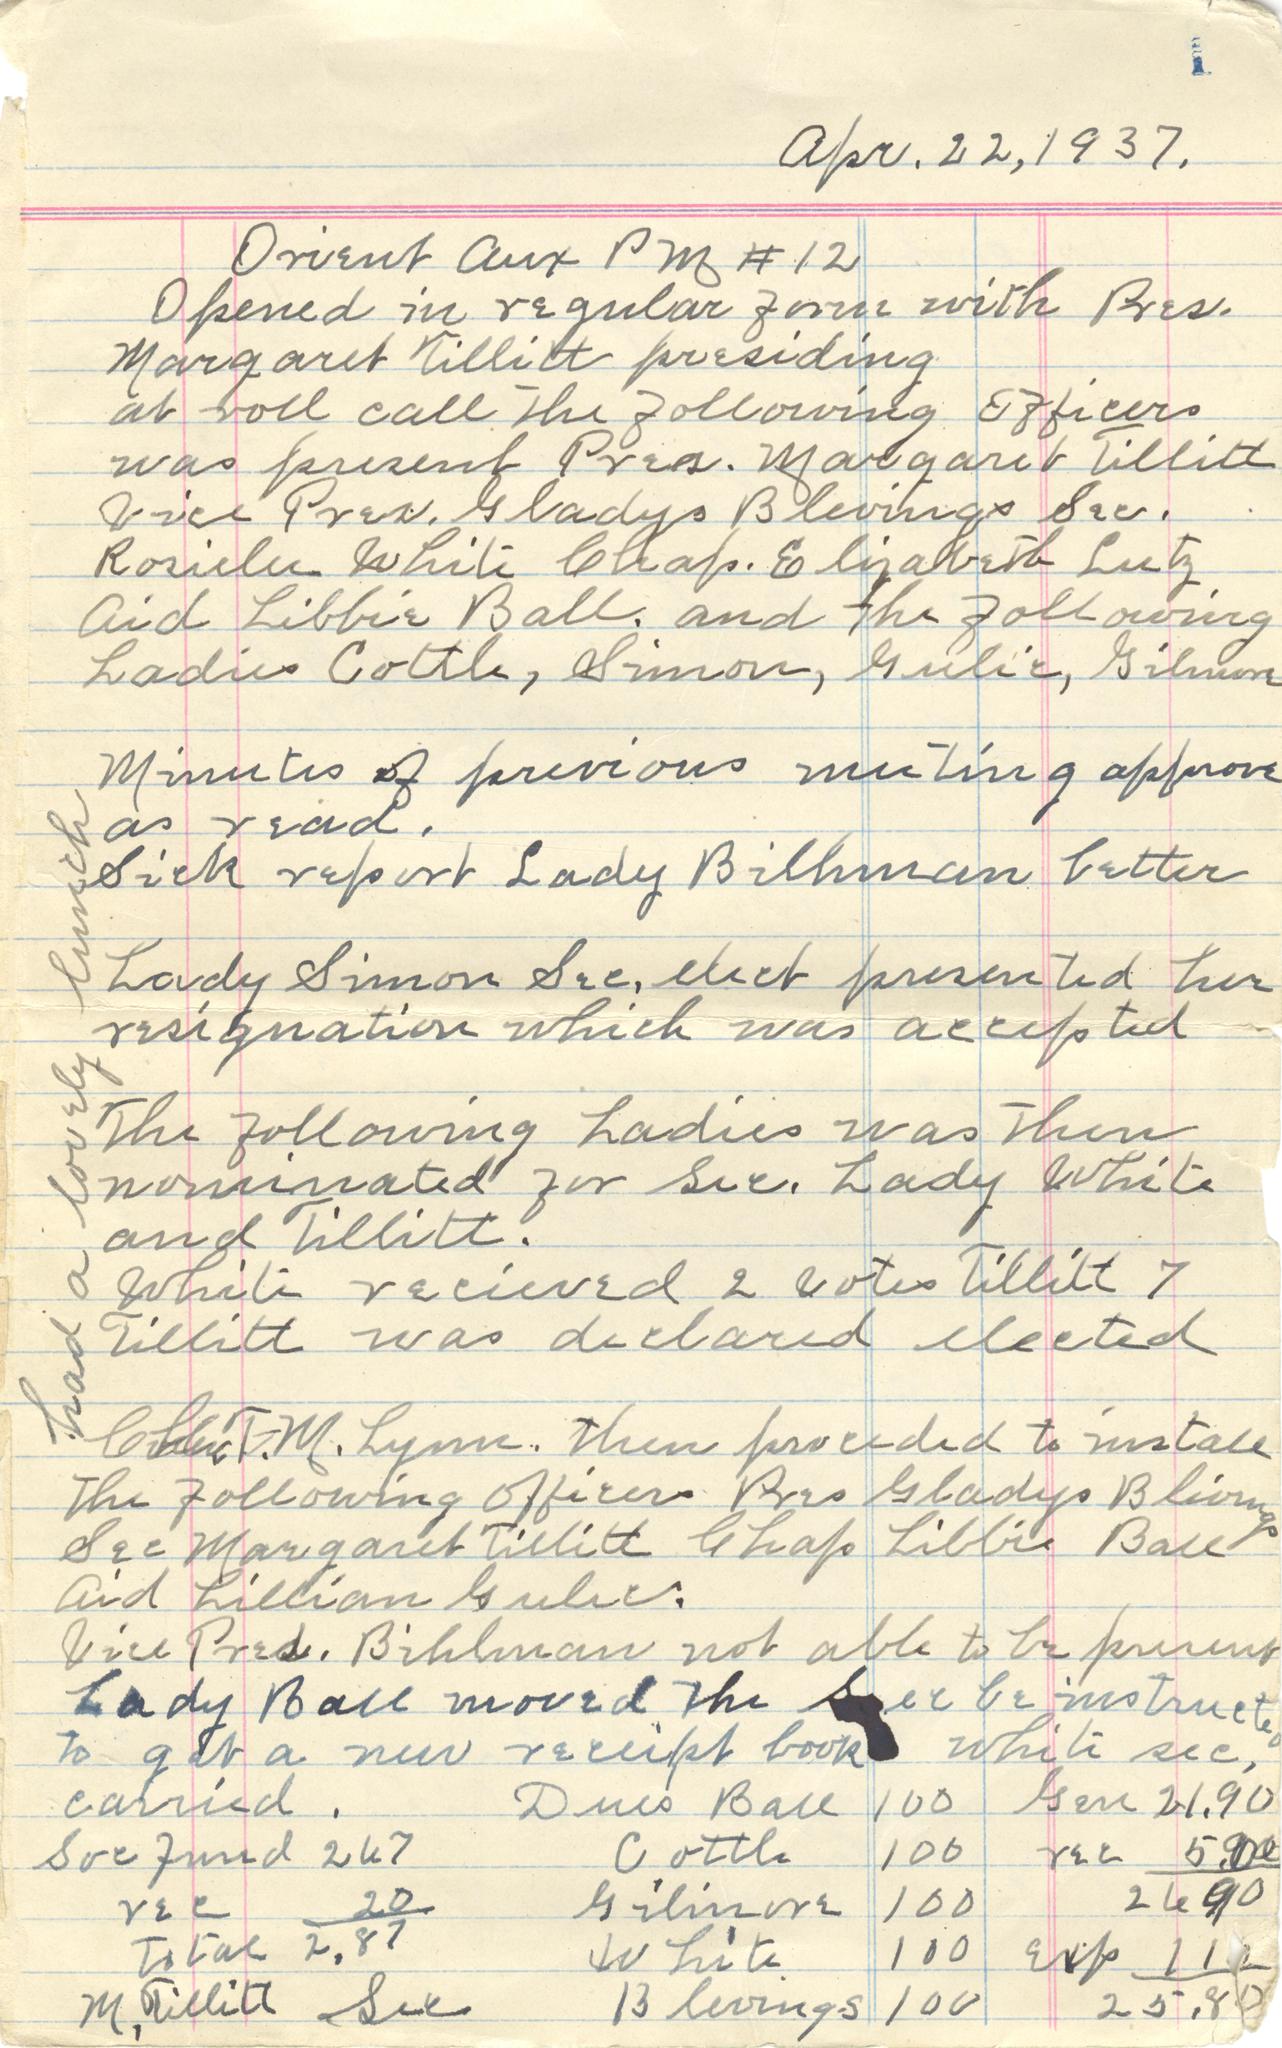 1
Apr. 22, 1937.
Orient Aux P M # 12
Opened in regular form with Pres.
Margaret Tillitt presiding
at roll call the following Officers
was present Pres. Margaret Tillitt
Vice Pres. Gladys Blevings Sec.
White Chap. Elizabeth Lutz
Aid Libbie Ball. and the following
Ladies Cottle, Simon, Gulic, Gilmore
Minutes of previous meeting approve
as read.
Sick report Lady Bilhman better
Lady Simon Sec. elect presented her
resignation which was accepted
The following Ladies was then
nominated for Sec. Lady White
and Tillitt.
White recieved 2 votes Tillitt 7
Tillitt was declared elected
T. M. Lynn. then proceded to install
the following Officers Pres Gladys Blivings
Sec Margaret Tillitt Chap Libbie Ball
Aid Lillian Gulic.
Vice Pres. Bihlman not able to be present
Lady Ball moved the Sec be instructed
to get a new receipt book White sec,
carried. Dues Ball 100 Gen 21.90
Soc Fund 267 Cottle 100 rec 5.00
rec 20 Gilmore 100 2690
total 2.87 White 100 exp
M, Tillitt Sec Blevings 100
had a lovely lunch